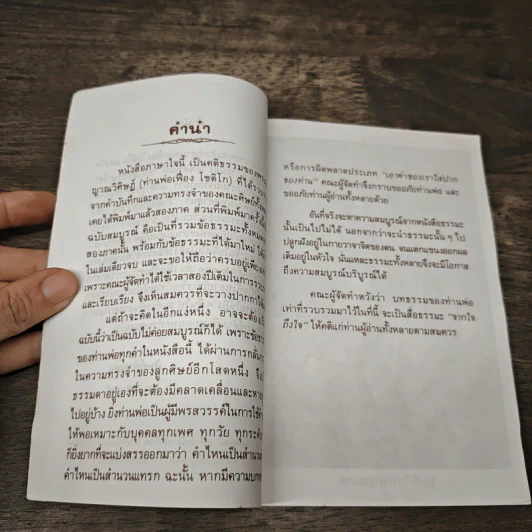 คำนำ
หนังสือภาษาใจนี้ เป็นคติธรรมของพระ
ญาณวิศิษฏ์ (ท่านพ่อเฟื่อง โชติโก) ที่ได้รวบ
จากคำบันทึกและความทรงจำของคณะศิษย์ทั้ง
เคยได้พิมพ์มาแล้วสองภาค ส่วนที่พิมพ์มาครั้งนี้
ฉบับสมบูรณ์ คือเป็นที่รวมข้อธรรมะทั้งหมด
สองภาคนั้น พร้อมกับข้อธรรมะที่ได้มาใหม่
ในเล่มเดียวจบ และจะขอให้ถือว่าครบอยู่เพียง
เพราะคณะผู้จัดทำได้ใช้เวลาสองปีเต็มในการรวบ
และเรียบเรียง จึงเห็นสมควรที่จะวางปากกาได้
แต่ถ้าจะคิดในอีกแง่หนึ่ง อาจจะต้อง
ฉบับนี้ว่าเป็นฉบับไม่ค่อยสมบูรณ์ก็ได้ เพราะข้อธร
ของท่านพ่อทุกคำในหนังสือนี้ ได้ผ่านการกลั่น
ในความทรงจำของลูกศิษย์อีกโสดหนึ่ง จึง
ธรรมดาอยู่เองที่จะต้องมีคลาดเคลื่อนและหาย
ไปอยู่บ้าง ยิ่งท่านพ่อเป็นผู้มีพรสวรรค์ในการใช้คำ
ให้พอเหมาะกับบุคคลทุกเพศ ทุกวัย ทุกระดับ
ก็ยิ่งยากที่จะแบ่งสรรออกมาว่า คำไหนเป็นสำนวน
คำไหนเป็นสำนวนแทรก ฉะนั้น หากมีความบก
หรือการผิดพลาดประเภท "เอาคำของเราใส่ปาก
ของท่าน" คณะผู้จัดทำจึงกราบขออภัยท่านพ่อ และ
ขออภัยท่านผู้อ่านทั้งหลายด้วย
อันที่จริงจะหาความสมบูรณ์จากหนังสือธรรมะ
นั้นเป็นไปไม่ได้ นอกจากว่าจะนำธรรมะนั้น ๆ ไป
ปลูกฝังอยู่ในกายวาจาจิตของตน จนแตกแขนงออกผล
เต็มอยู่ในหัวใจ นั่นแหละธรรมะทั้งหลายจึงจะมีโอกาส
ถึงความสมบูรณ์บริบูรณ์ได้
คณะผู้จัดทำหวังว่า บทธรรมของท่านพ่อ
เท่าที่รวบรวมมาไว้ในที่นี้ จะเป็นสื่อธรรมะ "จากใจ
ถึงใจ" ให้คติแก่ท่านผู้อ่านทั้งหลายตามสมควร